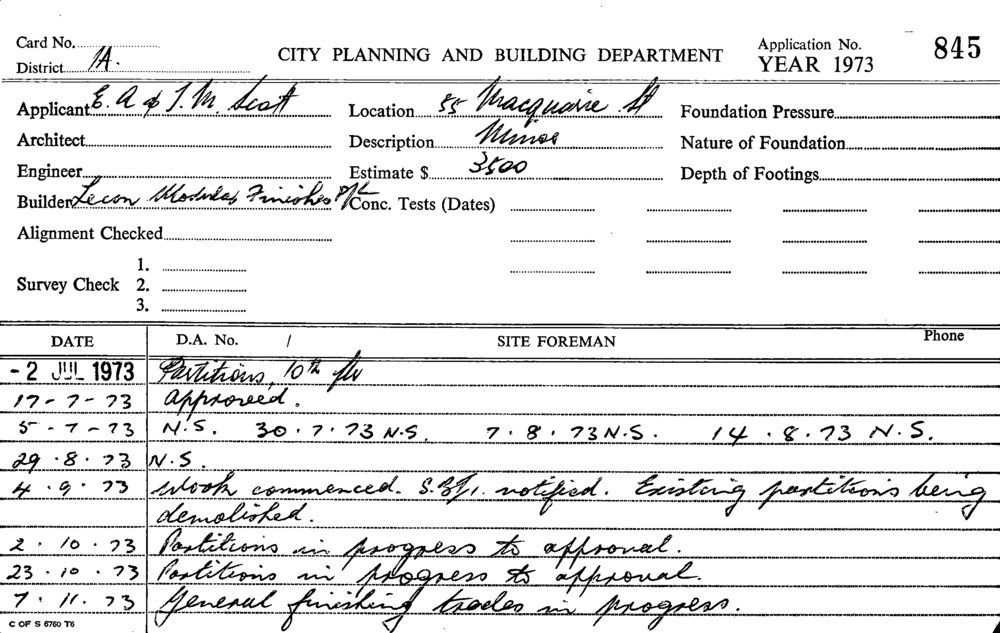 Card No.
CITY PLANNING AND BUILDING DEPARTMENT
Application No. 845
District 1A.
YEAR 1973
Applicant E. A & J. M. Scott Location 55 Macquarie St Foundation Pressure
Architect Description Minor Nature of Foundation
Engineer Estimate $ 3500 Depth of Footings
Builder Lecon Modular Finishes P/L Conc. Tests (Dates)
Alignment Checked
1.
Survey Check 2.
3.
DATE D.A. No. / SITE FOREMAN Phone
- 2 JUL 1973 Partitions, 10th flr
17-7-73 Approved.
5-7-73 N.S. 30.7.73 N.S. 7.8.73 N.S. 14.8.73 N.S.
29.8.73 N.S.
4.9.73 Work commenced. notified. Existing partitions being
demolished.
2.10.73 Partitions in progress to approval.
23.10.73 Partitions in progress to approval.
7.11.73 General finishing trades in progress.
C OF S 6760 T6